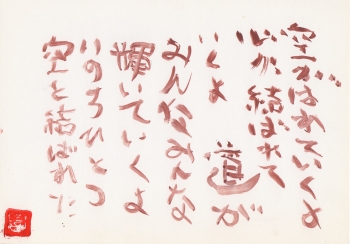 空がはれていくよ
心が結ばれて
いくよ 道が
みんなみんな
輝いていくよ
いのちひとつ
空と結ばれた